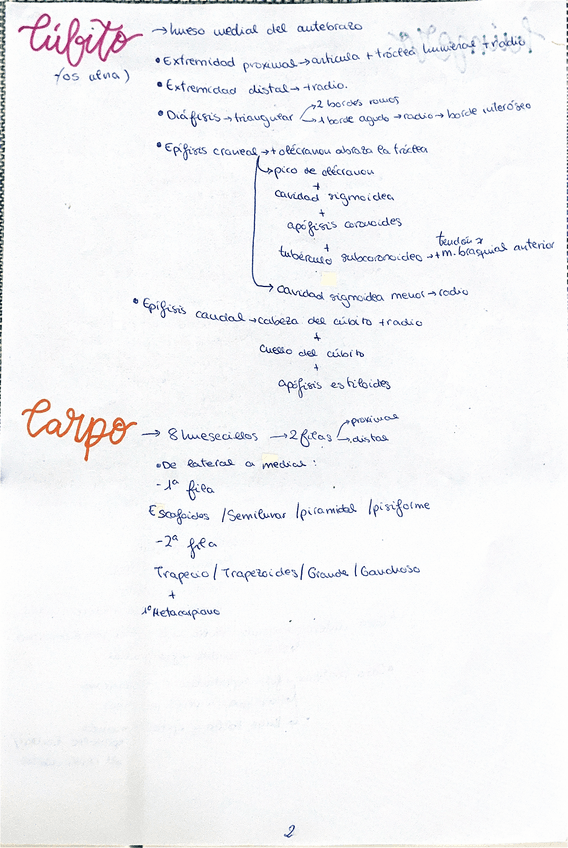 Cúbito → hueso medial del antebrazo
(os ulna)
• Extremidad proximal → articula + tróclea humeral + radio
• Extremidad distal → + radio.
• Diáfisis → triangular → 2 bordes romos
→ 1 borde agudo → radio → borde interóseo
• Epífisis craneal → + olécranon abraza la tróclea
→ pico de olécranon
+
cavidad sigmoidea
+
apófisis coronoides
+
tendón
tubérculo subcoronoideo → + m. braquial anterior
→ cavidad sigmoidea menor → radio
• Epífisis caudal → cabeza del cúbito + radio
+
cuello del cúbito
+
apófisis estiloides
Carpo → 8 huesecillos → 2 filas → proximal
→ distal
• De lateral a medial:
- 1ª fila
Escafoides / Semilunar / piramidal / pisiforme
- 2ª fila
Trapecio / Trapezoides / Grande / Ganchoso
+
1º Metacarpiano
2